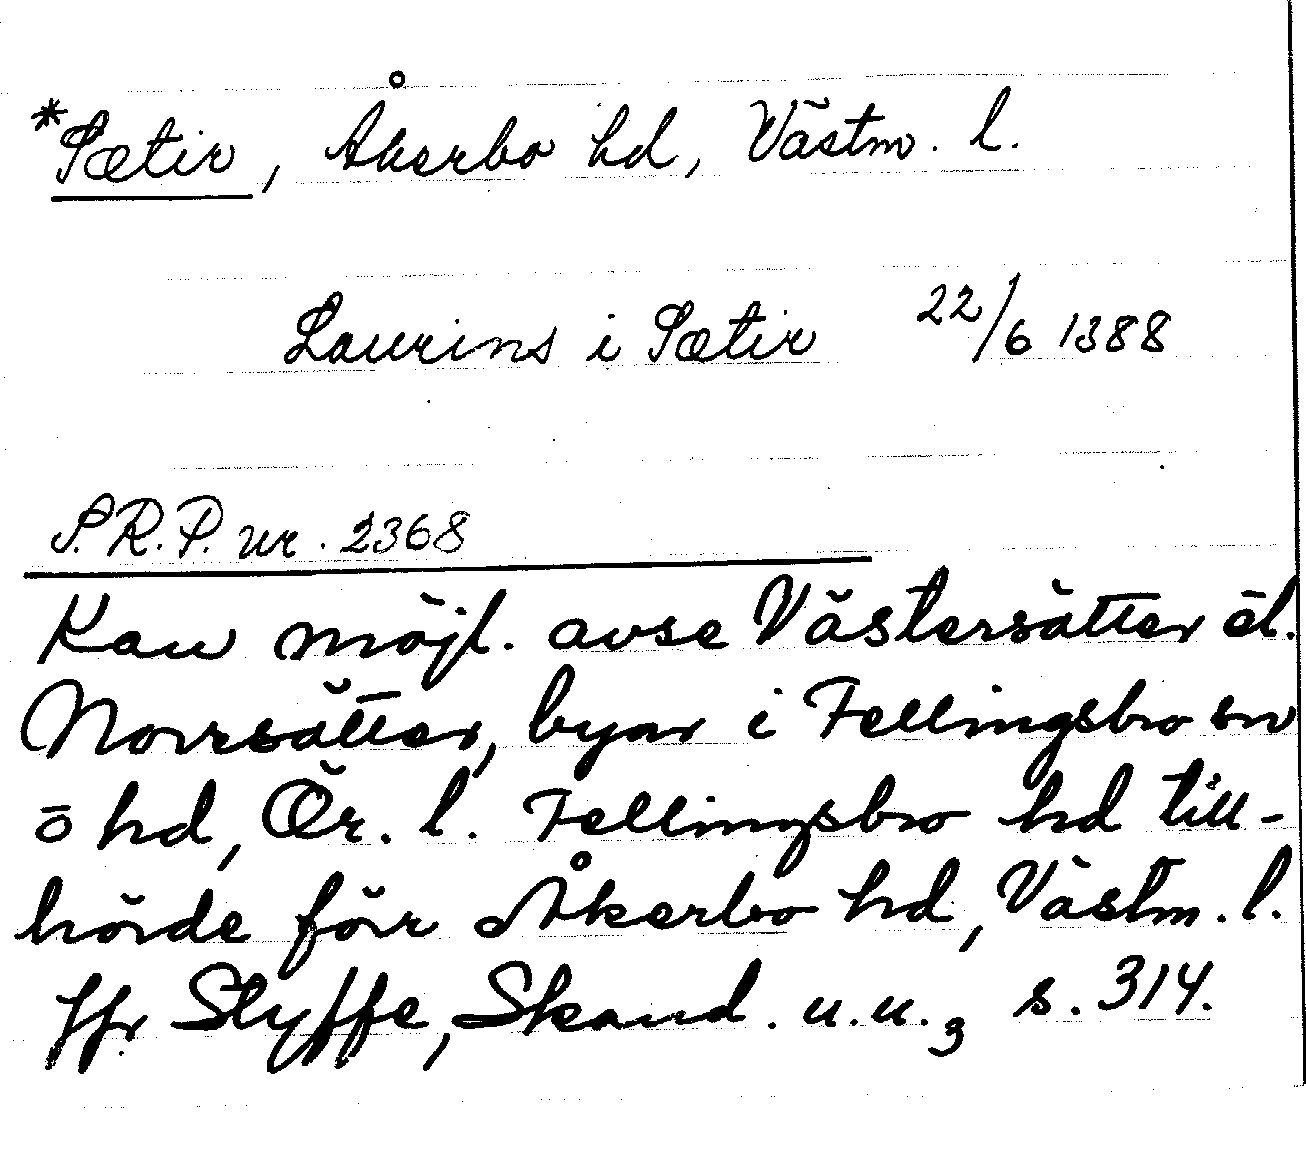 *Sætir, Åkerbo hd, Västm. l.
Laurins i Sætir 22/6 1388
S.R.P. nr. 2368
Kan möjl. avse Västersätter el.
Norrsätter, byar i Fellingsbro sn
o hd, Ör. l. Fellingsbro hd till-
hörde förr Åkerbo hd, Västm. l.
Jfr Styffe, Skand. u.u.3 s. 314.